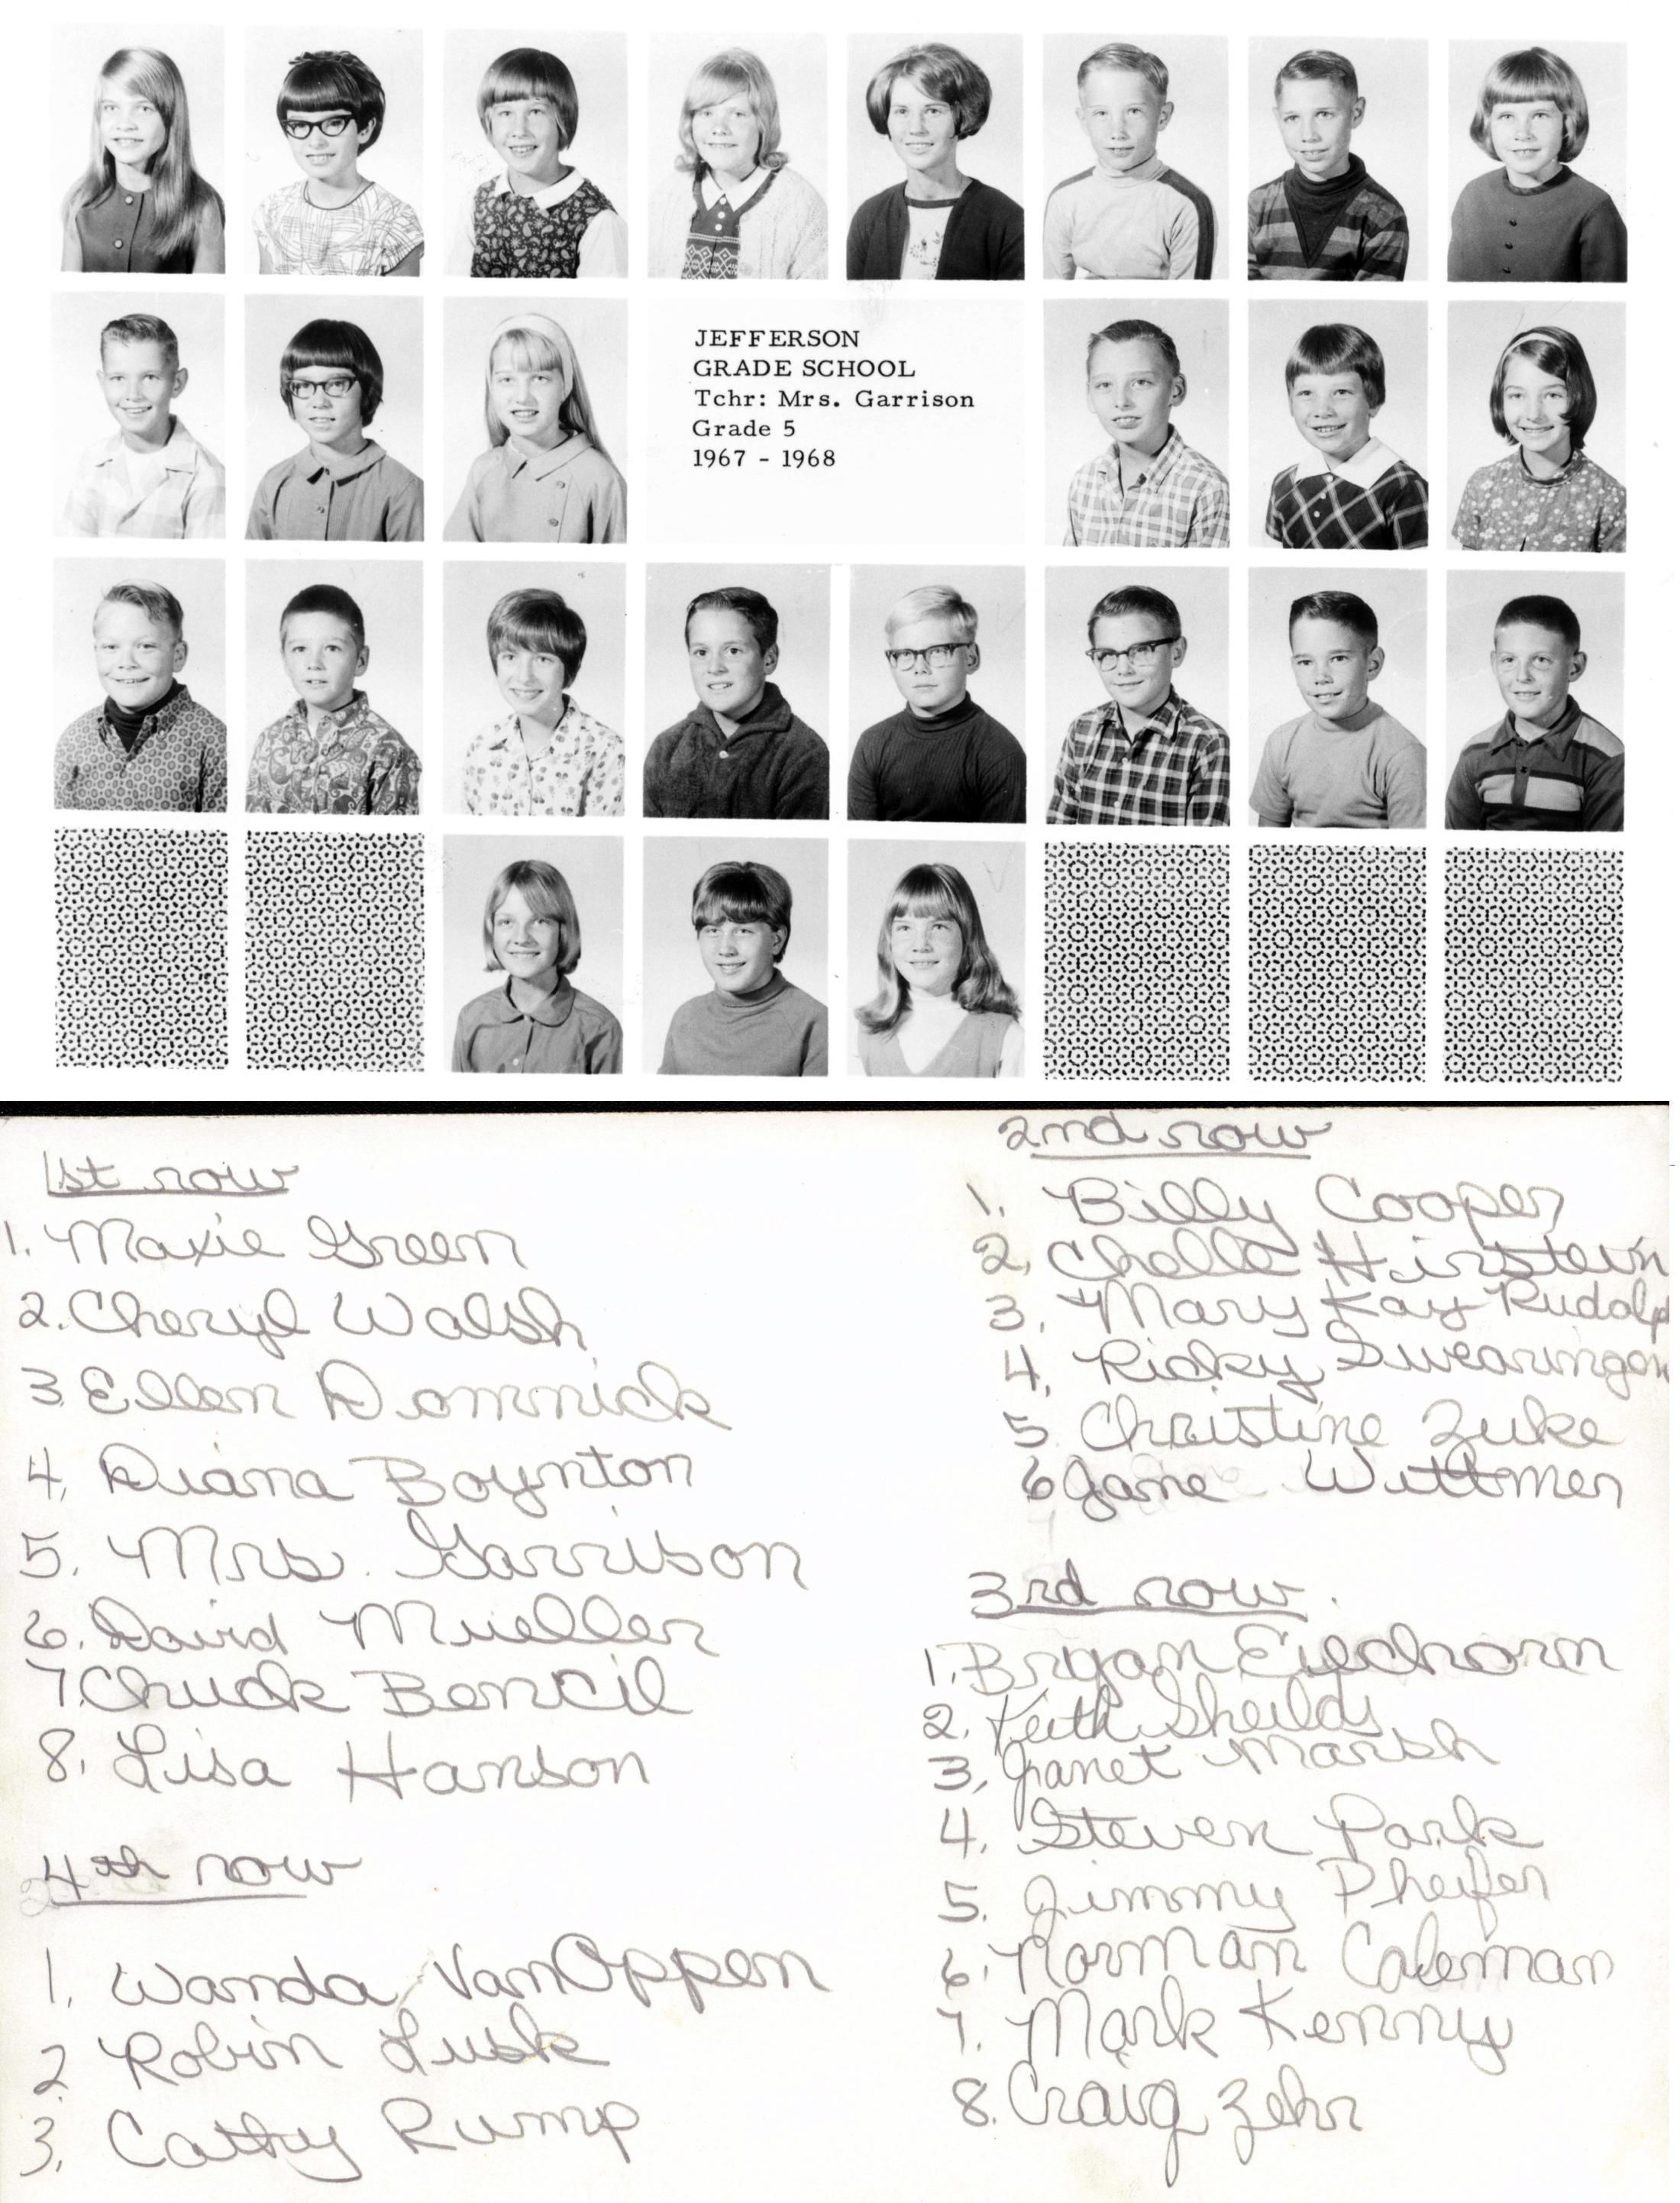 JEFFERSON
GRADE SCHOOL
Tchr: Mrs. Garrison
Grade 5
1967 - 1968
1st row
1. Maxie Green
2. Cheryl Walsh
3. Ellen Domnick
4. Diana Boynton
5. Mrs. Garrison
6. David Mueller
7. Chuck Bencil
8. Lisa Hanson
4th row
1. Wanda VanOppen
2 Robin Lusk
3. Cathy Rump
2nd row
1. Billy Cooper
2. Chelle Hirstein
3. Mary Kay Rudolp
4. Ricky Swearingen
5 Christine Zuke
6 Jane Wittmer
3rd row.
1. Bryan Eiechorn
2. Keith Sheilds
3. Janet Marsh
4. Steven Park
5. Jimmy Pheifer
6. Norman Coleman
7. Mark Kenny
8. Craig Zehr